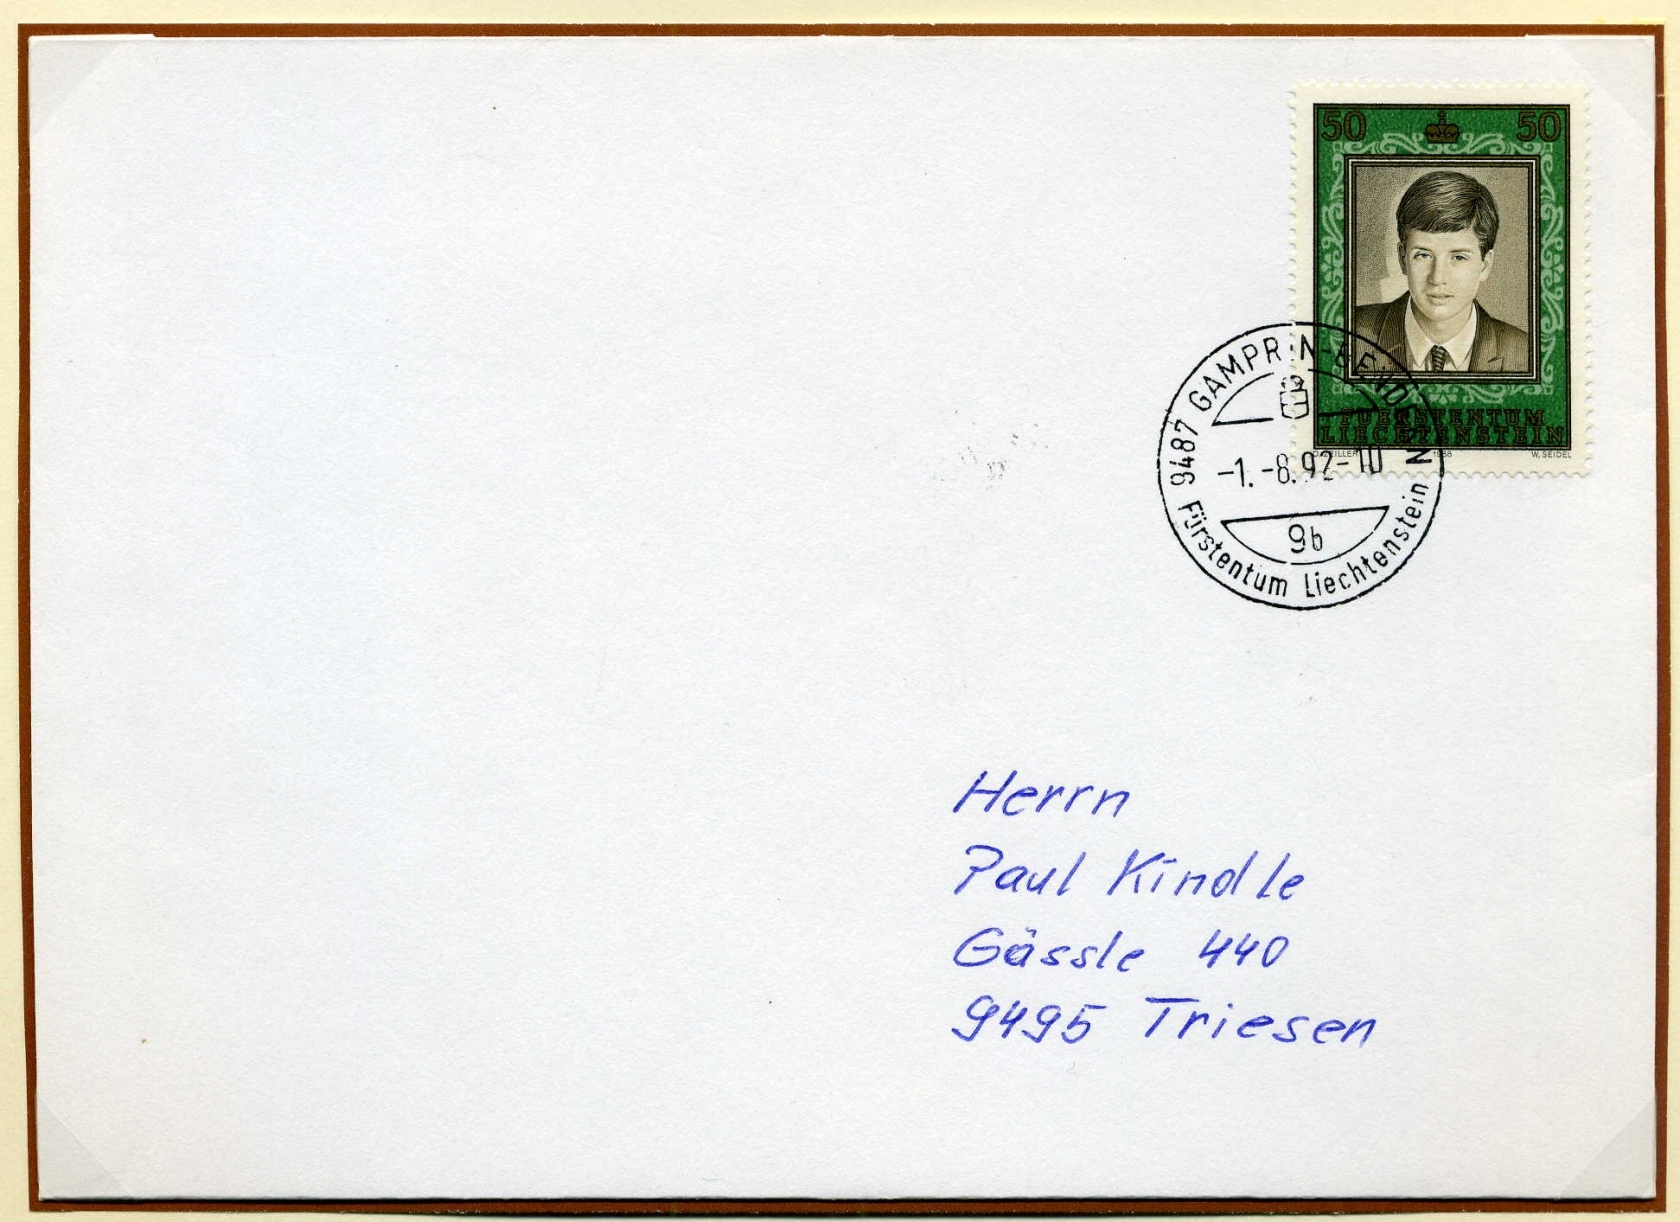 50 50
FUERSTENTUM
LIECHTENSTEIN
O. ZEILLER 1988 W. SEIDEL
9487 GAMPRIN-BENDERN
-1.-8.92-10
9b
Fürstentum Liechtenstein
Herrn
Paul Kindle
Gässle 440
9495 Triesen